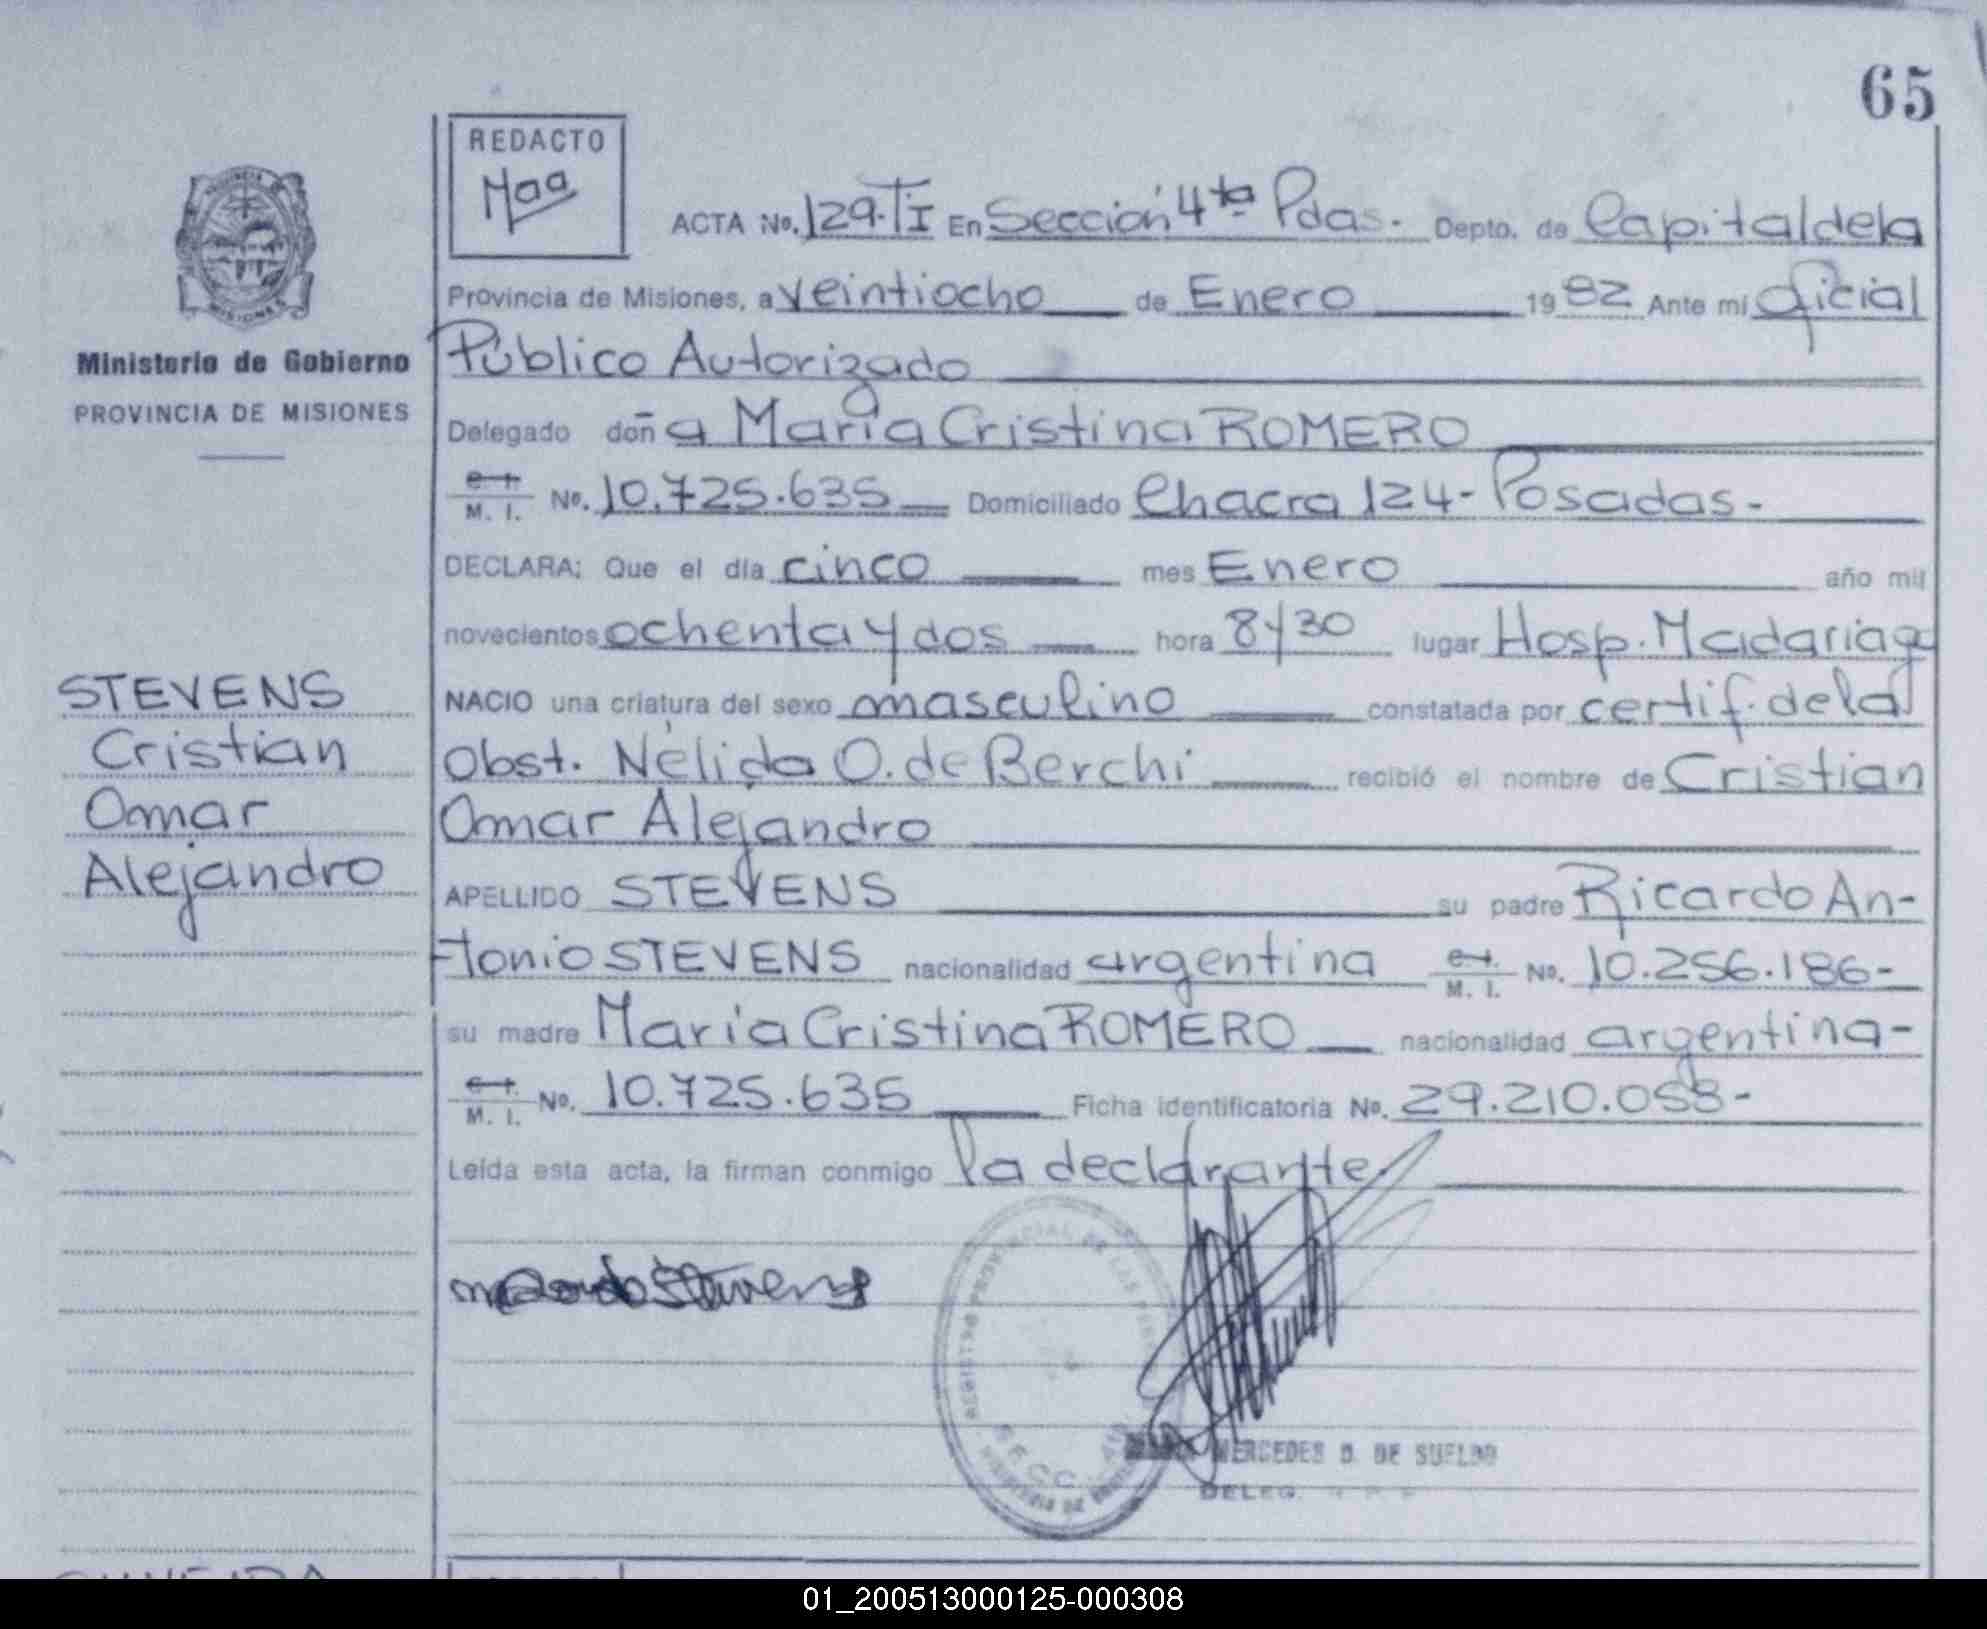 65
REDACTO
ACTA No. 129-TI En Sección 4ta Pdas. Depto. de Capital de la
Provincia de Misiones, a veintiocho de Enero 1982 Ante mí Oficial
Público Autorizado
Delegado doña María Cristina ROMERO
C.I. M. I. No. 10.725.635 Domiciliado Chacra 124 - Posadas.-
DECLARA: Que el día cinco mes Enero año mil
novecientos ochenta y dos hora 8y30 lugar Hosp. Madariaga
NACIO una criatura del sexo masculino constatada por certif. de la
Obst. Nélida O. de Berchi recibió el nombre de Cristian
Omar Alejandro
APELLIDO STEVENS su padre Ricardo An-
tonio STEVENS nacionalidad argentina C.I. M. I. No. 10.256.186-
su madre María Cristina ROMERO nacionalidad argentina-
C.I. M. I. No. 10.725.635 Ficha identificatoria No. 29.210.058-
Leída esta acta, la firman conmigo la declarante
Stevens
REGISTRO PROVINCIAL DE LAS
SECC.
MERCEDES D. DE SUELDO
DELEG.
PROVINCIA DE
MISIONES
Ministerio de Gobierno
PROVINCIA DE MISIONES
STEVENS
Cristian
Omar
Alejandro
01_200513000125-000308